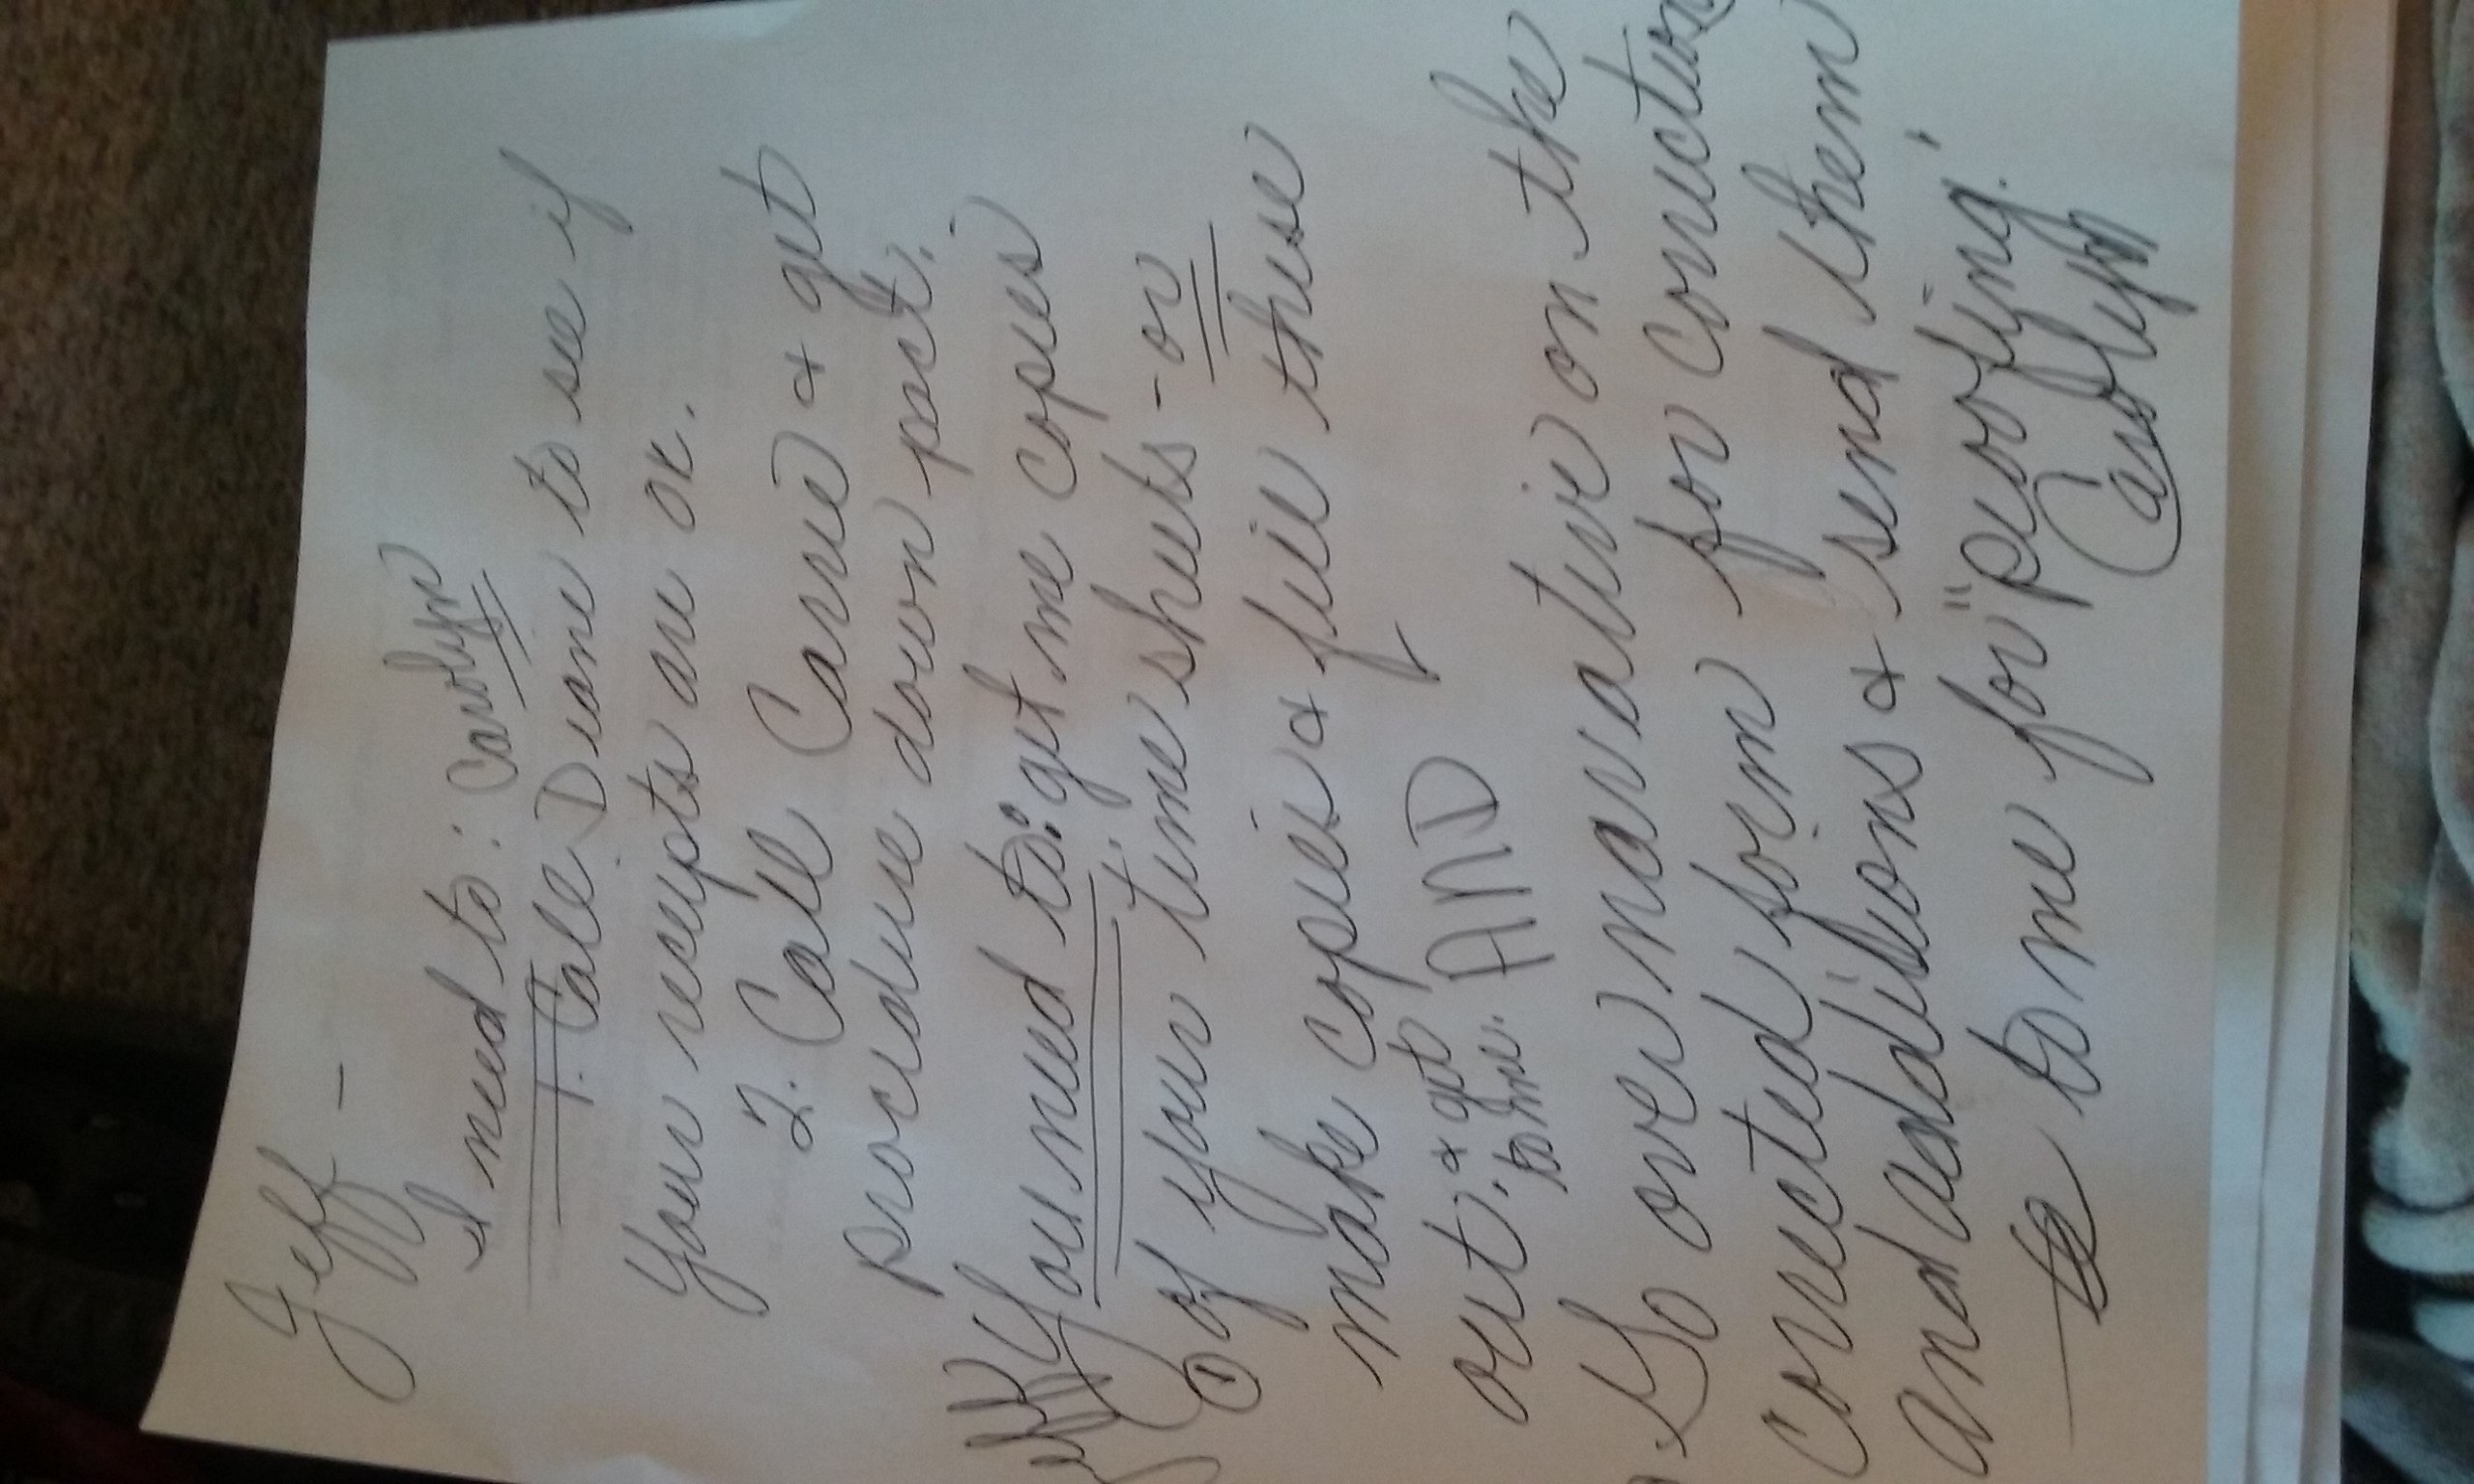 Jeff -
I need to: Carolyn
1. Call Diane to see if
your receipts are OK.
2. Call Carrie & get
procedure down pact.
Jeff You need to: get me copies
① of your time sheets - or
make copies & fill these
out. & get
to me. AND
Go over narrative on the
corrected form for correction
and additions & send them
to me for "proofing."
Carolyn